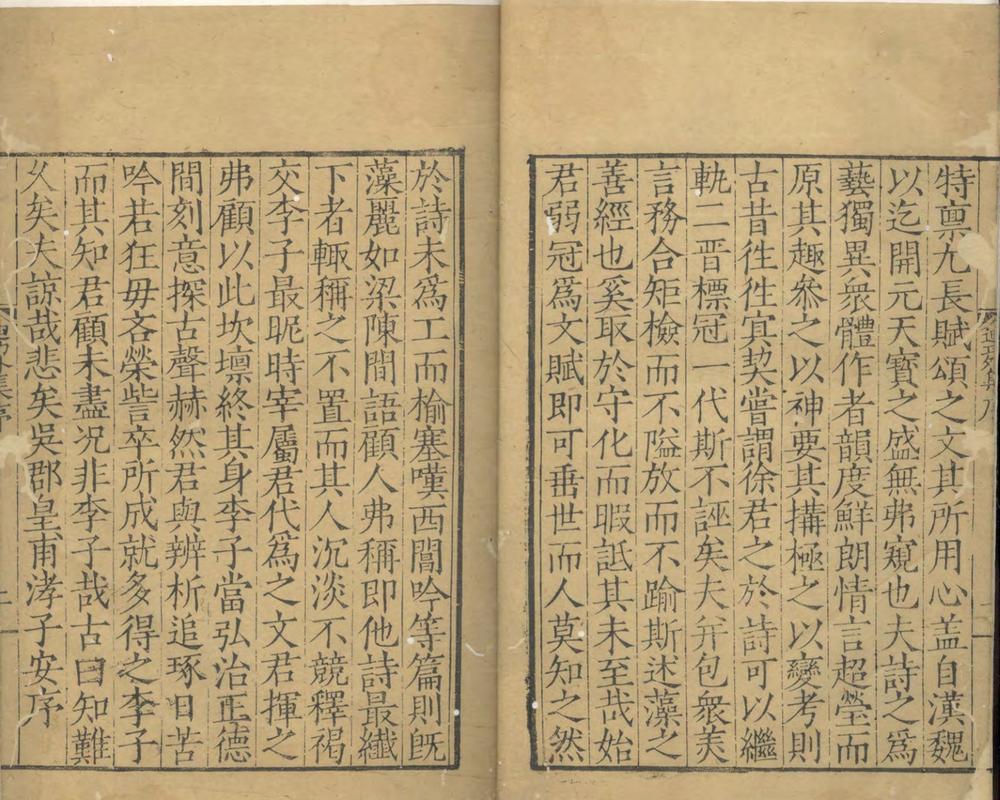 特稟尤長賦頌之文其所用心盖自漢魏
以迄開元天寳之盛無弗窺也夫詩之為
藝獨異衆體作者韻度鮮朗情言超瑩而
原其趣叅之以神要其搆極之以變考則
古昔徃徃㝠契嘗謂徐君之於詩可以繼
軌二晋標冠一代斯不誣矣夫弁包衆美
言務合矩檢而不隘放而不踰斯述藻之
善經也奚取於守化而暇詆其未至哉始
君弱冠爲文賦即可垂世而人莫知之然
於詩未爲工而榆塞嘆西閶吟等篇則旣
藻麗如梁陳間語顧人弗稱即他詩最纎
下者輒稱之不置而其人沉淡不競釋褐
交李子最昵時宰屬君代爲之文君揮之
弗顧以此坎壈終其身李子當弘治正德
間刻意探古聲赫然君與辨析追琢日苦
吟若狂毋吝榮訾卒所成就多得之李子
而其知君顧未盡况非李子哉古曰知難
乆矣夫諒哉悲矣吳郡皇甫涍子安序